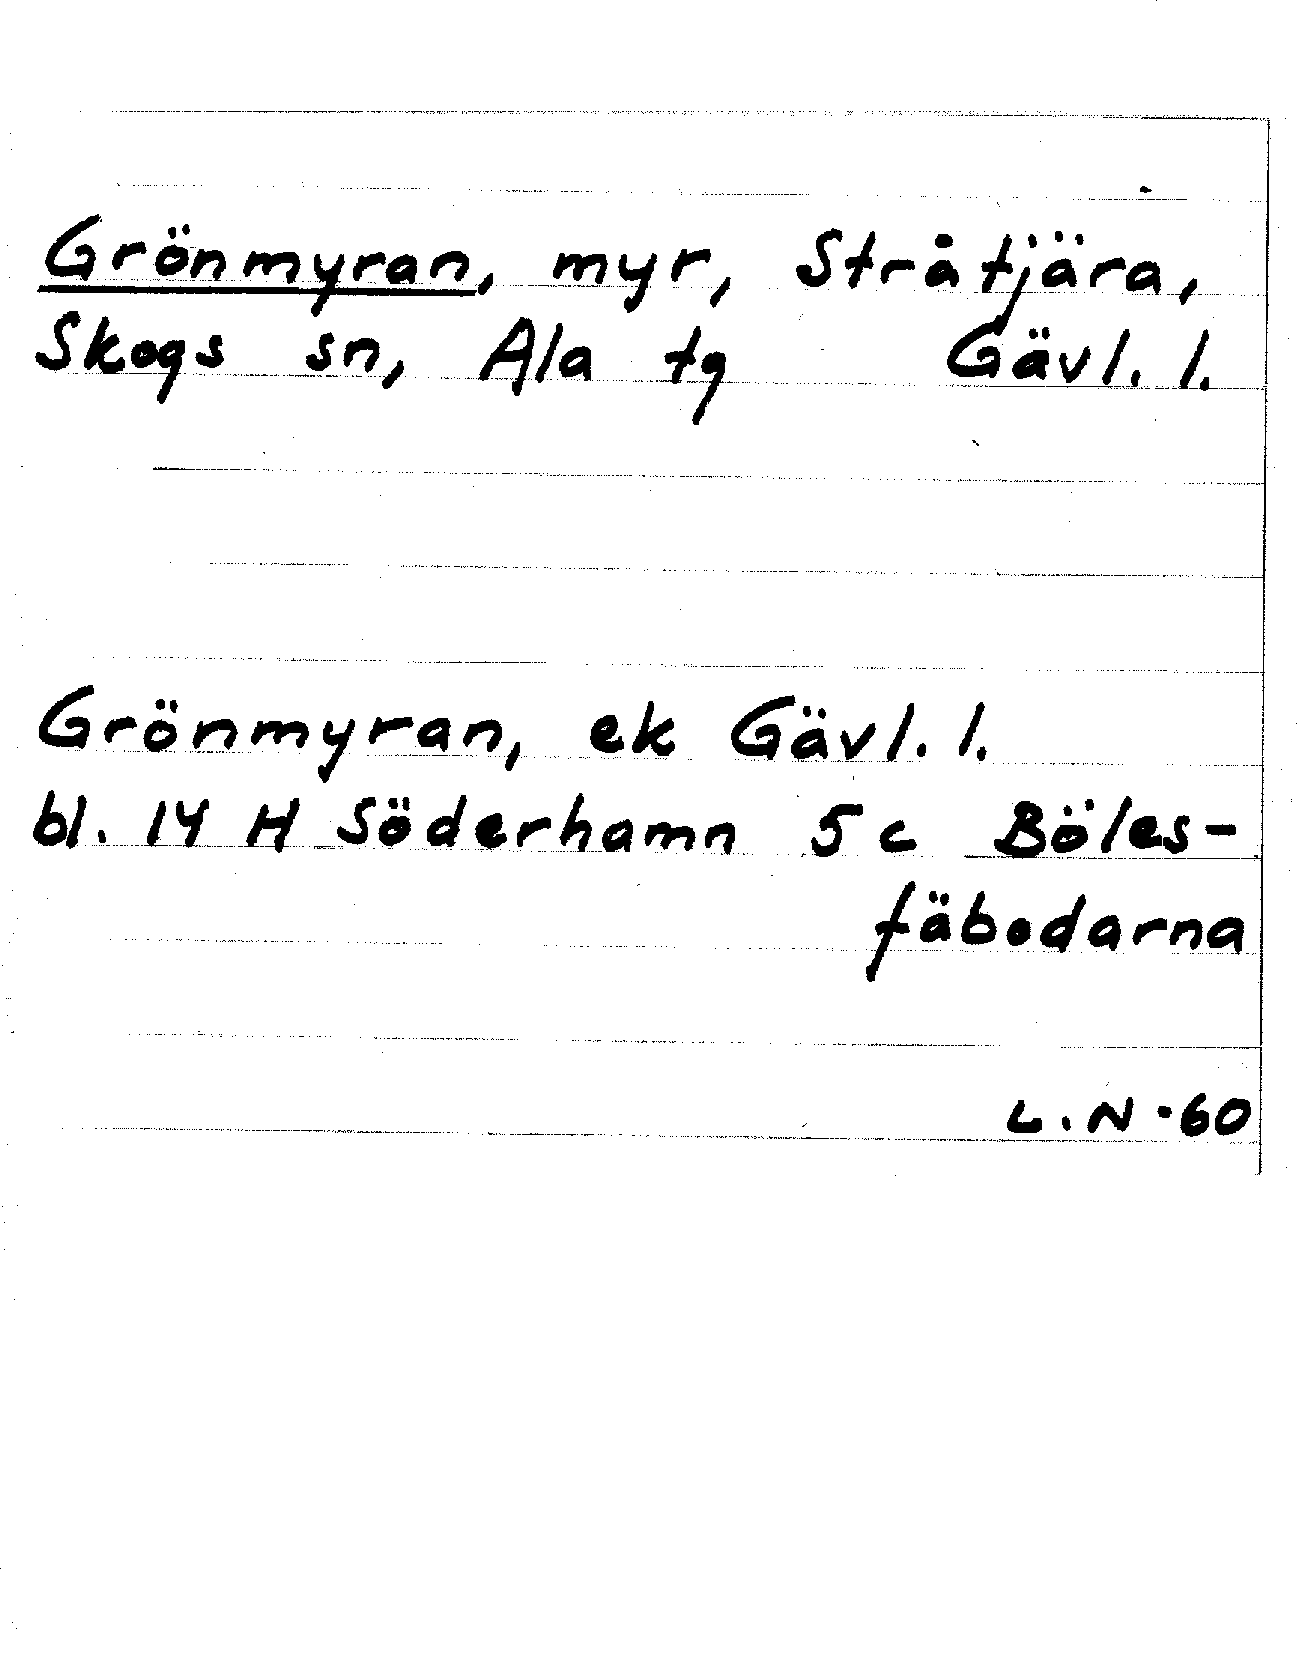 Grönmyran, myr, Stråtjära,
Skogs sn, Ala tg Gävl. l.
Grönmyran, ek Gävl. l.
bl. 14 H Söderhamn 5 c Böles-
fäbodarna
L. N. 60